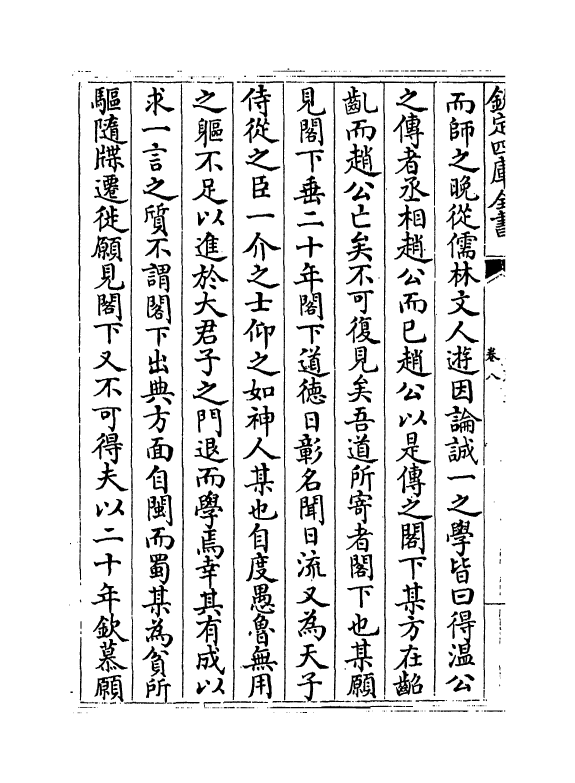 欽定四庫全書
卷八
而師之晚從儒林文人遊因論誠一之學皆曰得温公
之傳者丞相趙公而已趙公以是傳之閣下某方在齠
齓而趙公亡矣不可復見矣吾道所寄者閣下也某願
見閣下垂二十年閣下道德日彰名聞日流又為天子
侍從之臣一介之士仰之如神人某也自度愚魯無用
之軀不足以進於大君子之門退而學焉幸其有成以
求一言之質不謂閣下出典方面自閩而蜀某為貧所
驅隨牒遷徙願見閣下又不可得夫以二十年欽慕願